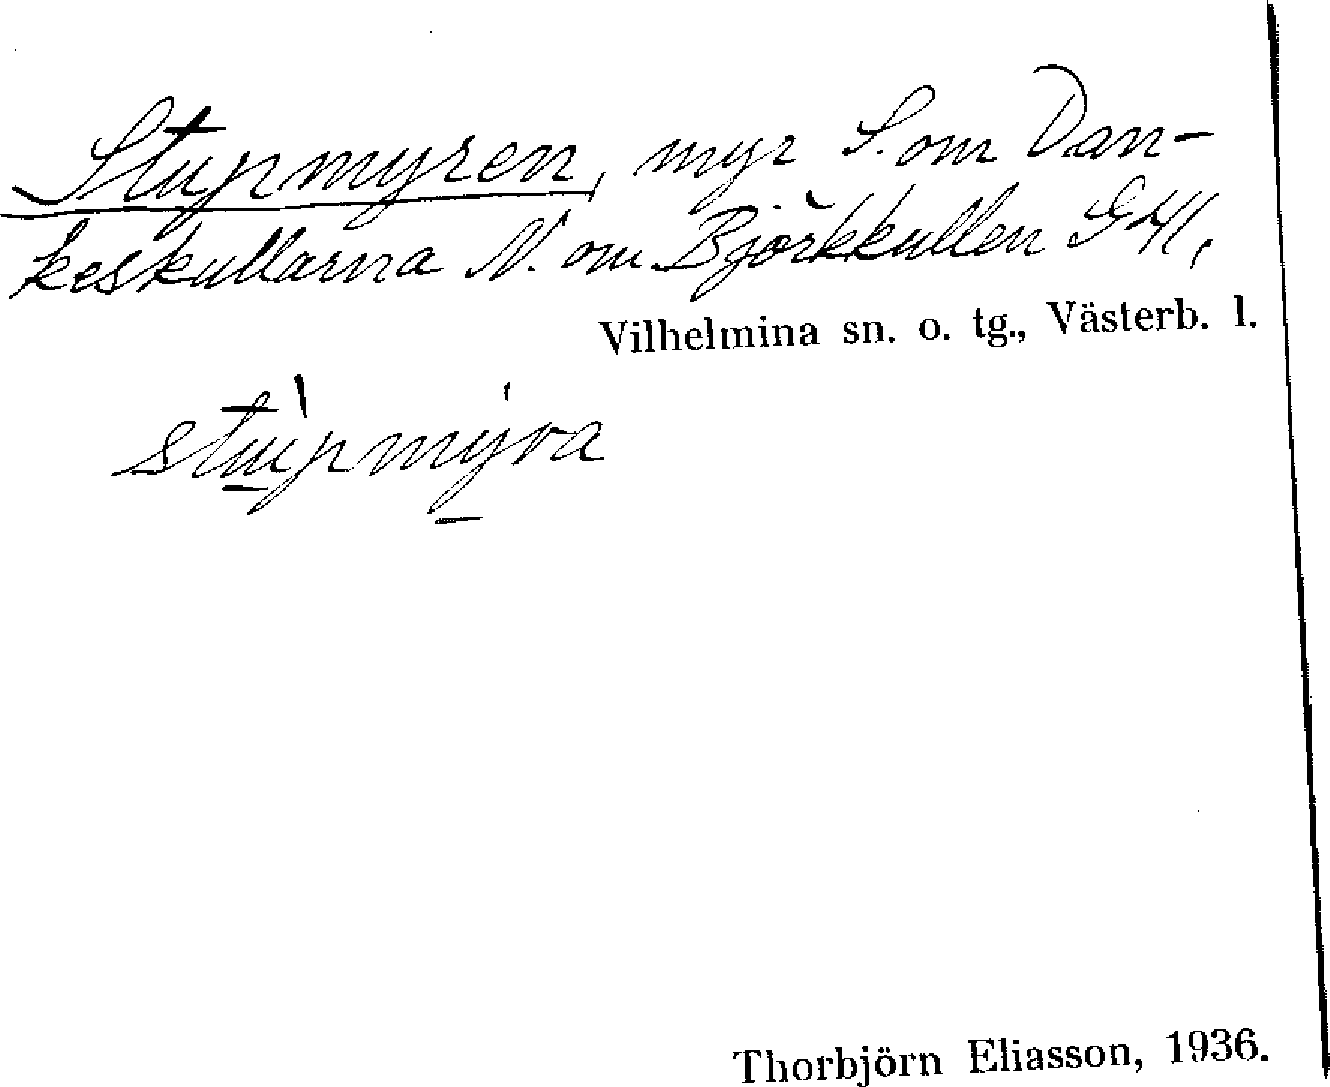 Stupmyren, myr S. om Dan-
keskullarna N. om Björkkullen
Vilhelmina sn. o. tg., Västerb. l.
Thorbjörn Eliasson, 1936.